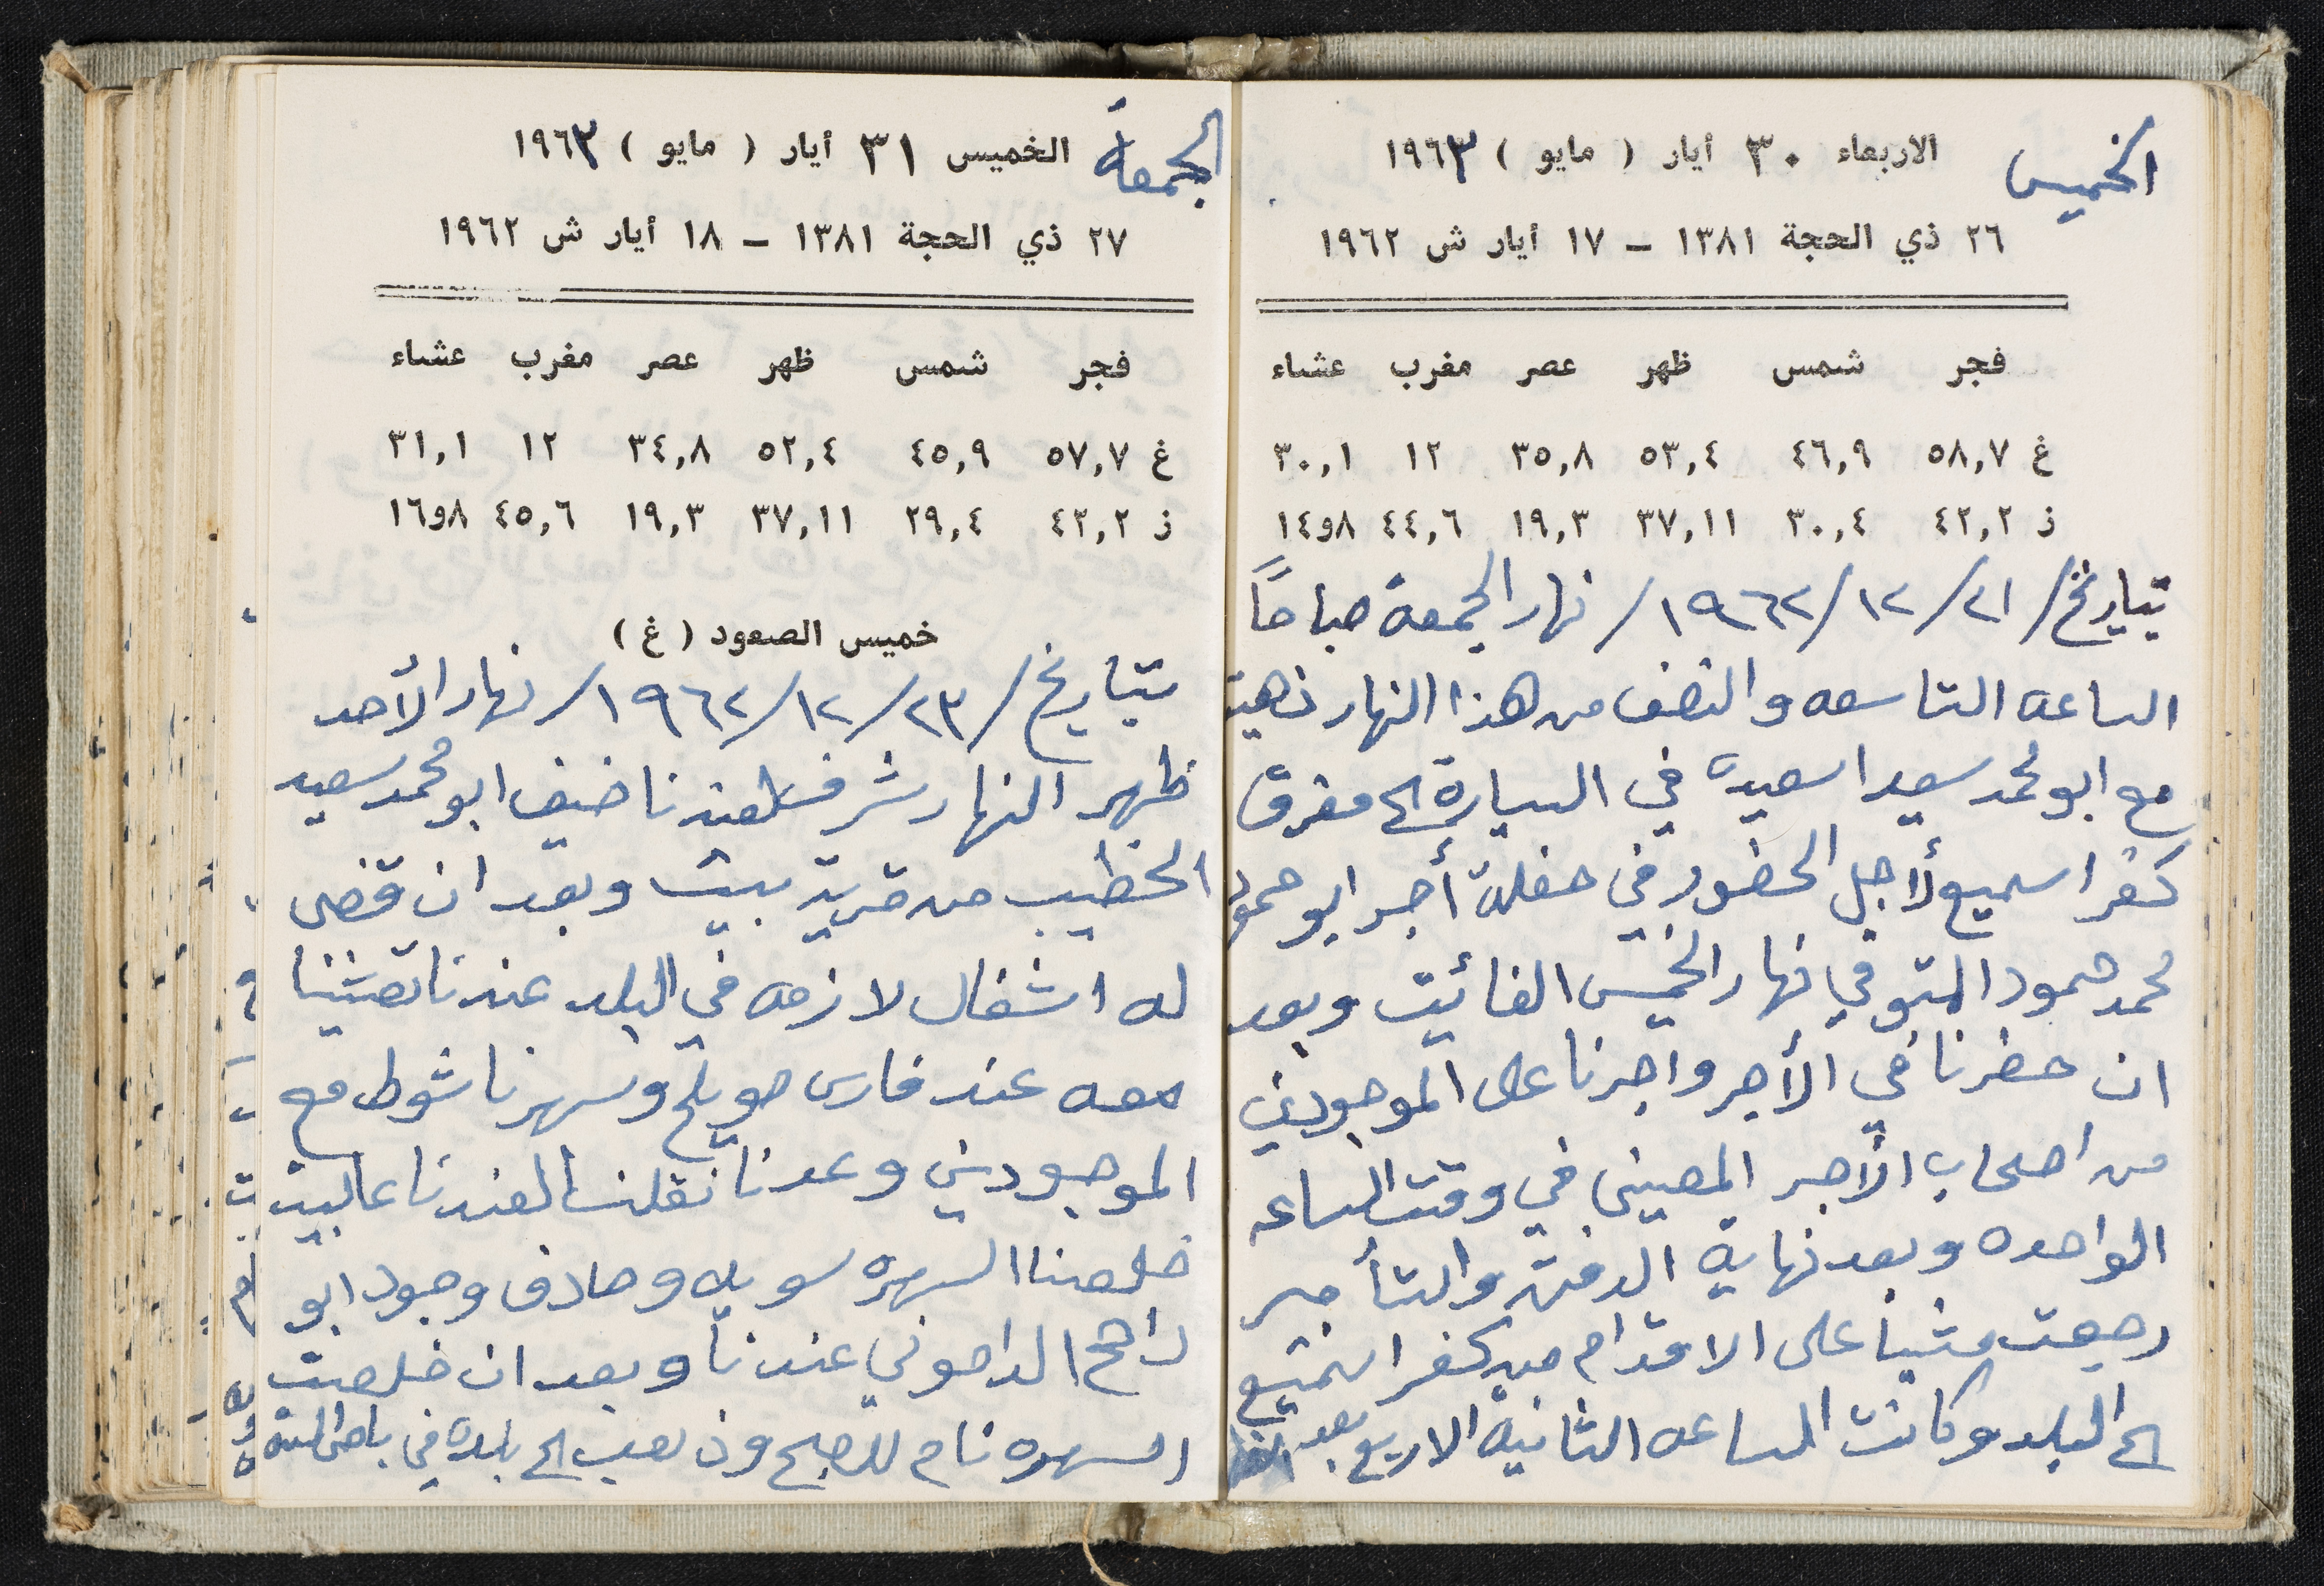 الخميس
الاربعاء ٣٠ أيار ( مايو ) ١٩٦٣
٢٦ ذي الحجة ١٣٨١ – ١٧ أيار ش ١٩٦٢
فجر شمس ظهر عصر مغرب عشاء
غ ٥٨,٧ ٤٦,٩ ٥٣,٤ ٣٥,٨ ١٢ ٣٠,١
ز ٤٢,٢ ٣٠,٤ ٣٧,١١ ١٩,٣ ٤٤,٦ ٨و١٤
بتاريخ / ٢١ / ١٢ / ١٩٦٢ / نهار الجمعة صباحاً
الساعه التاسعه والنصف من هذا النهار ذهبت
مع ابو محمد سعيد اسعيد في السيارة الى مفرق
كفر اسميع لأجل الحضور في حفلة أجر ابو حمود
محمد حمود المتوفي نهار الخميس الفائت وبعد
ان حضرنا في الأجر واجرنا على الموجودين
من اصحاب الأجر المعينى في وقت الساعه
الواحده وبعد نهاية الدفن والتأجير
رجعت مشياً على الاقدام من كفر اسميع
الى البلد وكانت الساعه الثانية الا ربع بعد
الجمعة
الخميس ٣١ أيار ( مايو ) ١٩٦٣
٢٧ ذي الحجة ١٣٨١ – ١٨ أيار ش ١٩٦٢
فجر شمس ظهر عصر مغرب عشاء
غ ٥٧,٧ ٤٥,٩ ٥٢,٤ ٣٤,٨ ١٢ ٣١,١
ز ٤٢,٢ ٢٩,٤ ٣٧,١١ ١٩,٣ ٤٥,٦ ٨و١٦
خميس الصعود ( غ )
بتاريخ / ٢٣ / ١٢ / ١٩٦٢ / نهار الأحد
ظهر النهار شرف لعندنا ضيف ابو محمد سعيد
الخطيب من قرية بيت وبعد ان قضى
له اشغال لازمه في البلد عندنا تعشينا
معه عند فارس حويلح وسهرنا شوط مع
الموجودين وعدنا نقلنا لعندنا عالبيت
خلصنا السهره سويه وصادف وجود ابو
راجح الداحوني عندنا وبعد ان خلصت
السهره نام للصبح وذهب الى بلده في باص